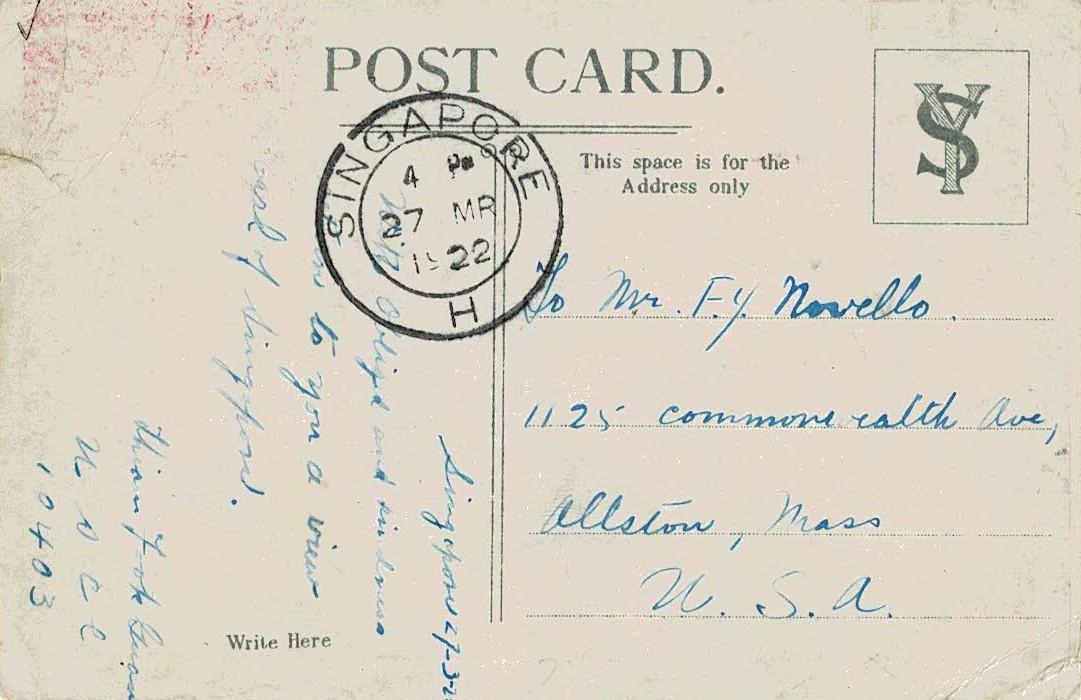 POST CARD.
This space is for the
Address only
SY
SINGAPORE
4 PM
27 MR
1922
H
To Mr. F. Y. Novello.
1125 commonwealth Ave,
Allston, Mass
U. S. A.
Singapore 27-3-
obliged and kindness
to you a view
card of Singapore.
Thiam Fook
U S C C
10403
Write Here